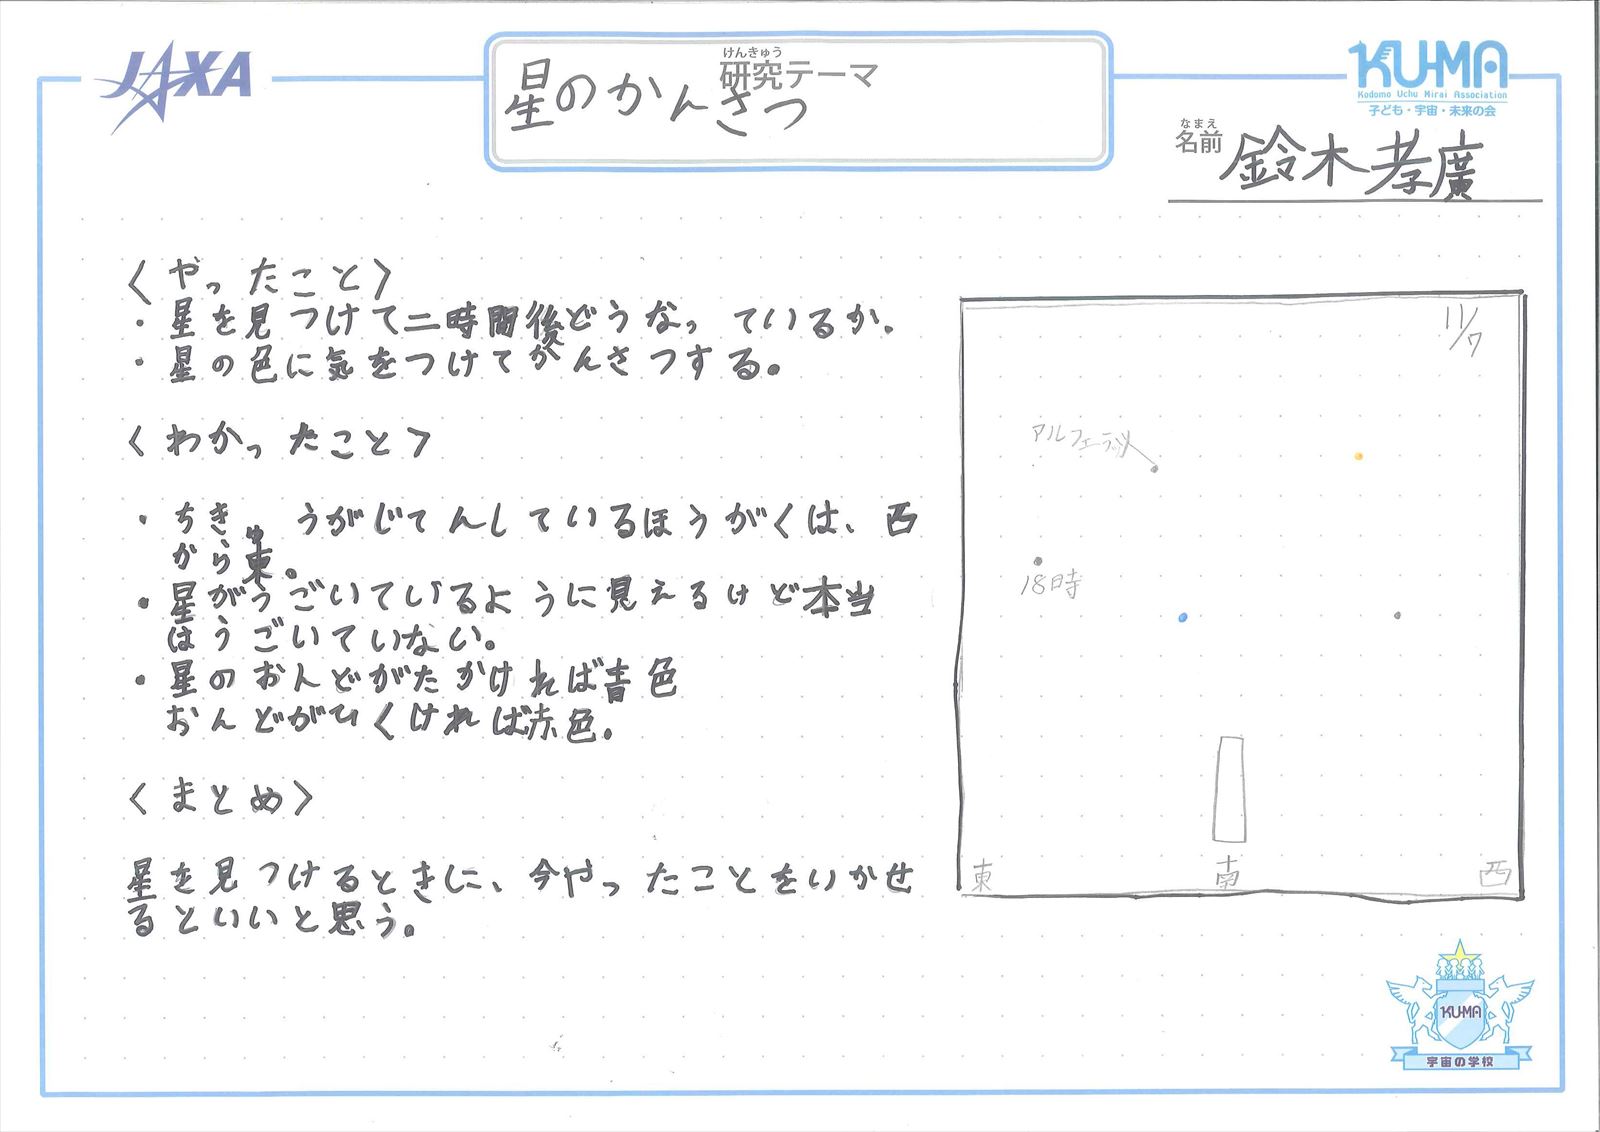 JAXA
けんきゅう
研究テーマ
星のかんさつ
KU-MA
Kodomo Uchu Mirai Association
子ども・宇宙・未来の会
なまえ
名前
鈴木孝廣
〈やったこと〉
・星を見つけて二時間後どうなっているか。
・星の色に気をつけてかんさつする。
〈わかったこと〉
・ちきゅうがじてんしているほうがくは、西
から東。
・星がうごいているように見えるけど本当
はうごいていない。
・星のおんどがたかければ青色
おんどがひくければ赤色。
〈まとめ〉
星を見つけるときに、今やったことをいかせ
るといいと思う。
11/7
アルフェラッツ
18時
東
南
西
KU-MA
宇宙の学校